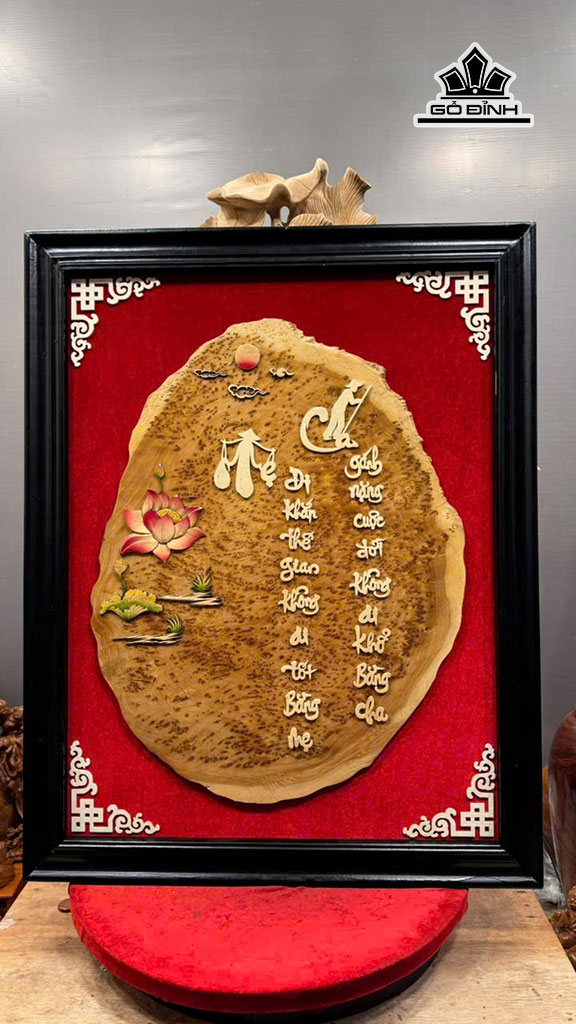 GỖ ĐỈNH
Mẹ
Đi khắp thế gian không ai tốt Bằng mẹ
Cha
gánh nặng cuộc đời không ai khổ Bằng cha